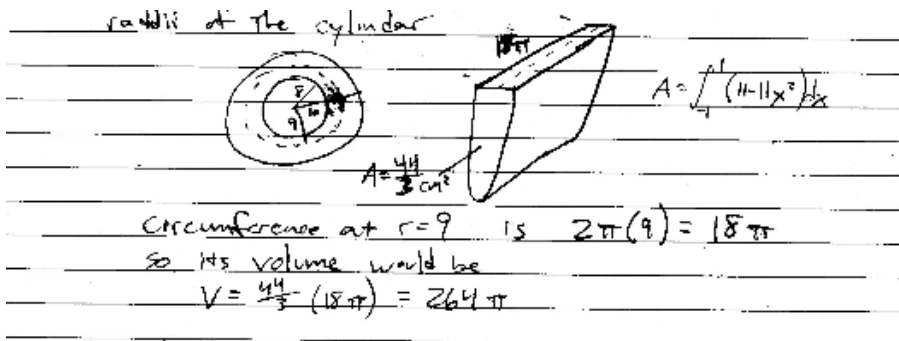 radii of the cylinder
18π
A = ∫_{-1}^{1} (11-11x²)dx
8
10
9
A = 44/3 cm²
Circumference at r=9 is 2π(9) = 18π
so its volume would be
V = 44/3 (18π) = 264π